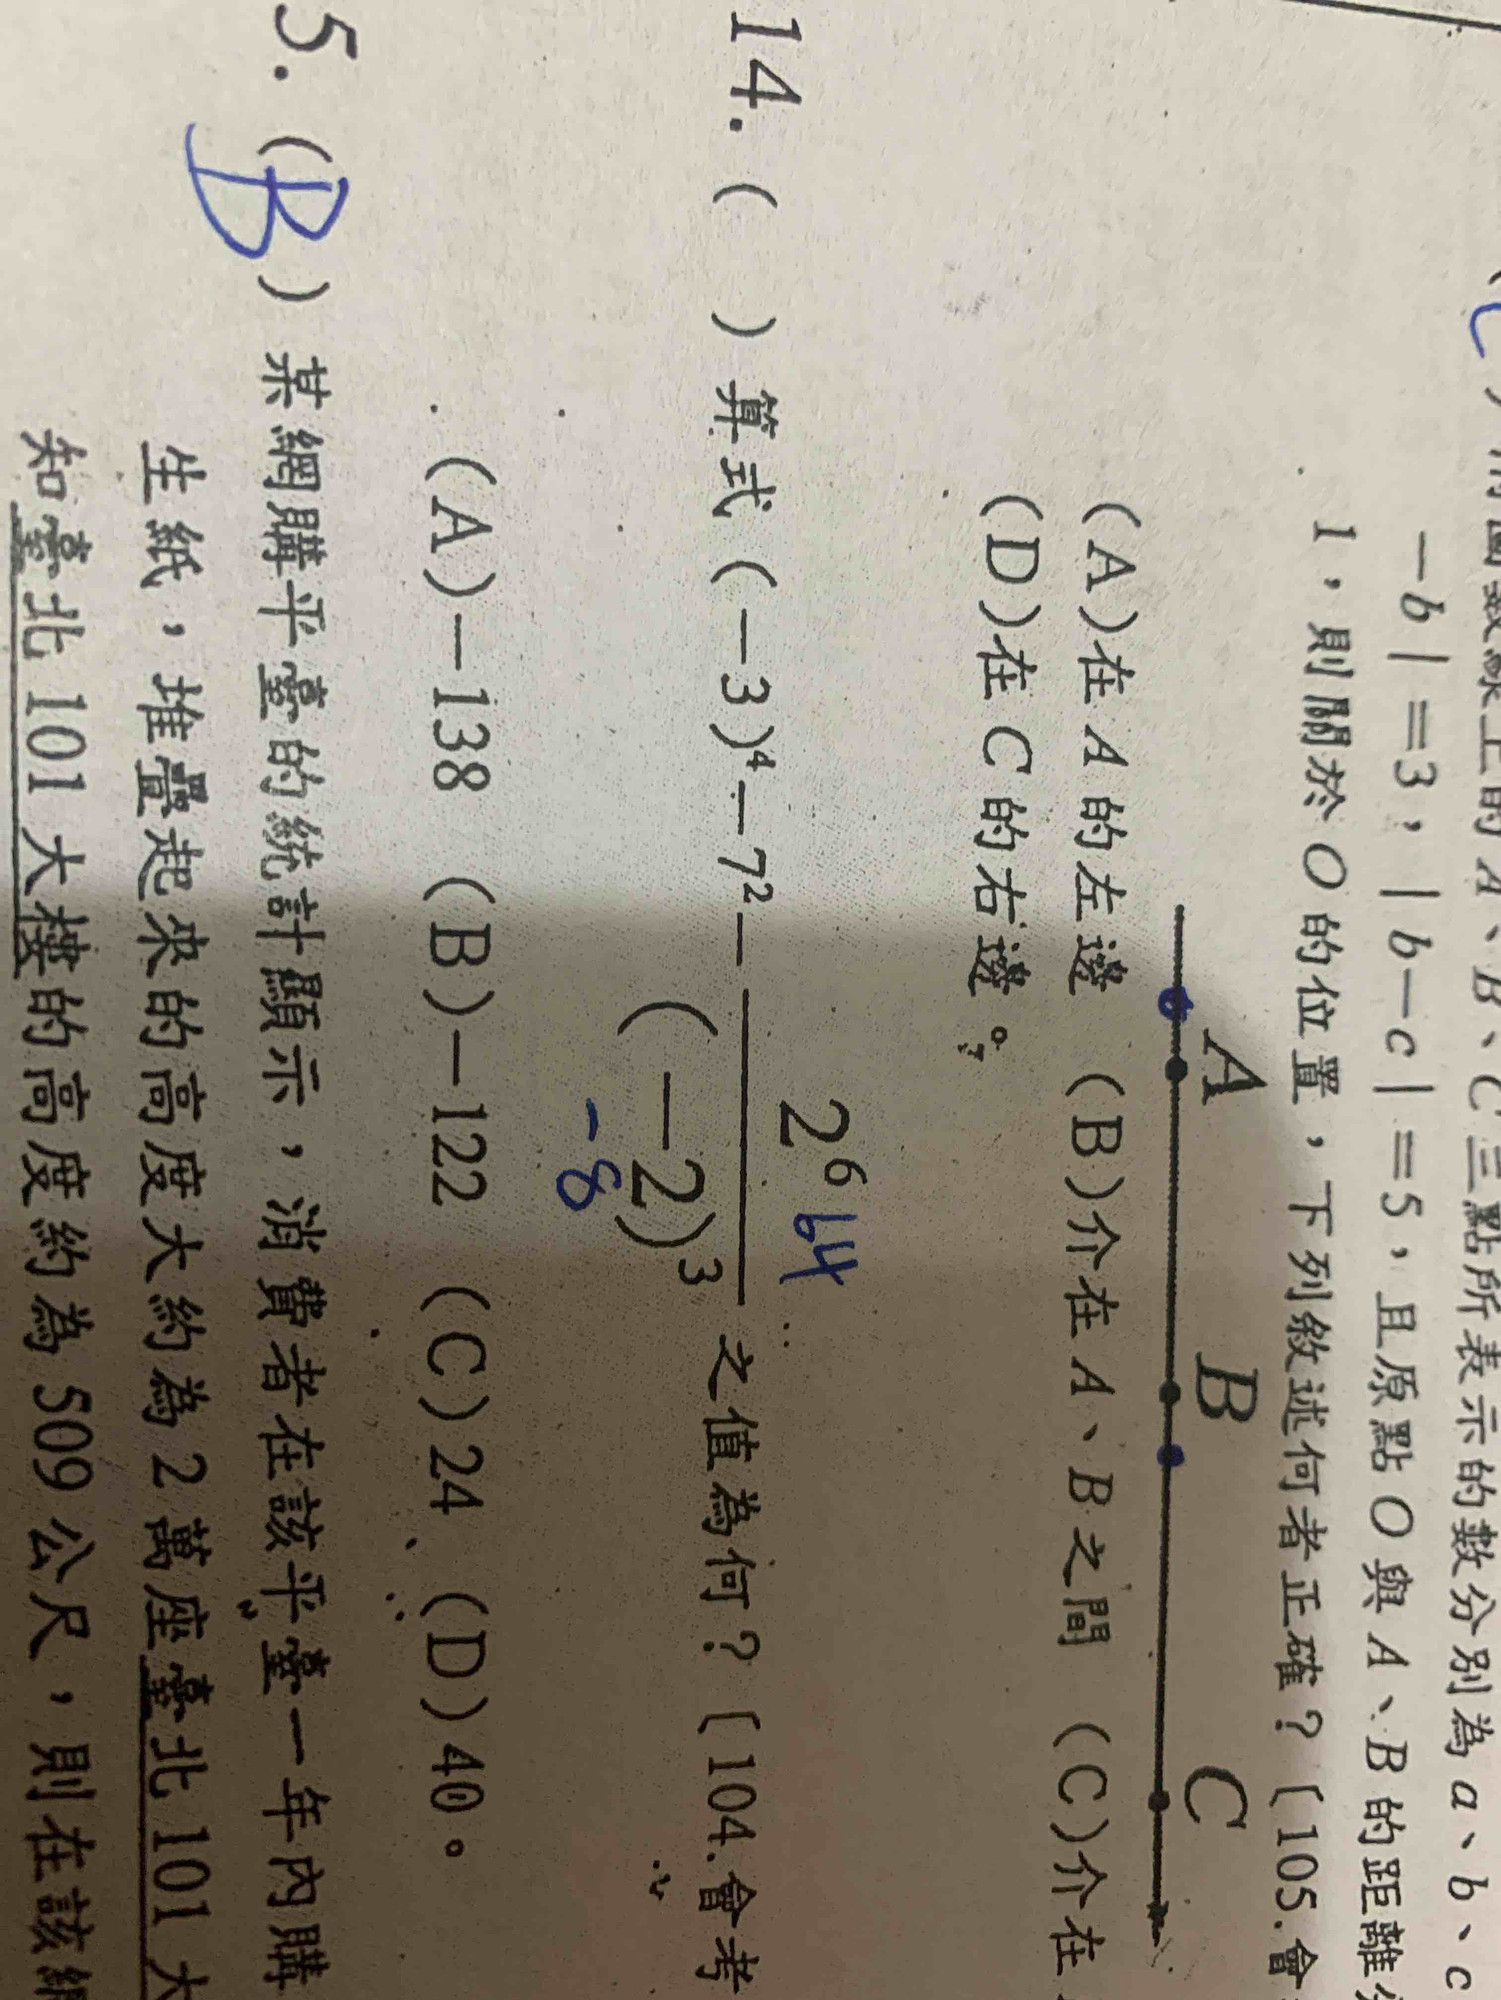 數線上的A、B、C三點所表示的數分別為a、b、c
−b|=3,|b−c|=5,且原點O與A、B的距離
1,則關於O的位置,下列敘述何者正確?〔105.會
A B C
(A)在A的左邊 (B)介在A、B之間 (C)介在
(D)在C的右邊。
14.( )算式(−3)⁴−7²−2⁶/(−2)³之值為何?〔104.會考
64
−8
(A)−138 (B)−122 (C)24 (D)40。
5.(B)某網購平臺的統計顯示,消費者在該平臺一年內購
生紙,堆疊起來的高度大約為2萬座臺北101大
知臺北101大樓的高度約為509公尺,則在該網